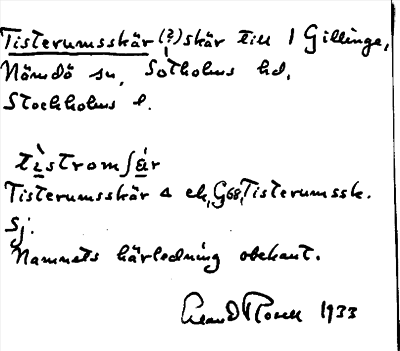 Tisterumsskär (?) skär till 1 Gillinge,
Nämdö sn, Sotholms hd,
Stockholms l.
tìstromʃä́r
Tisterumsskär ek, G68, Tisterumssk.
Sj.
Namnets härledning obekant.
1933